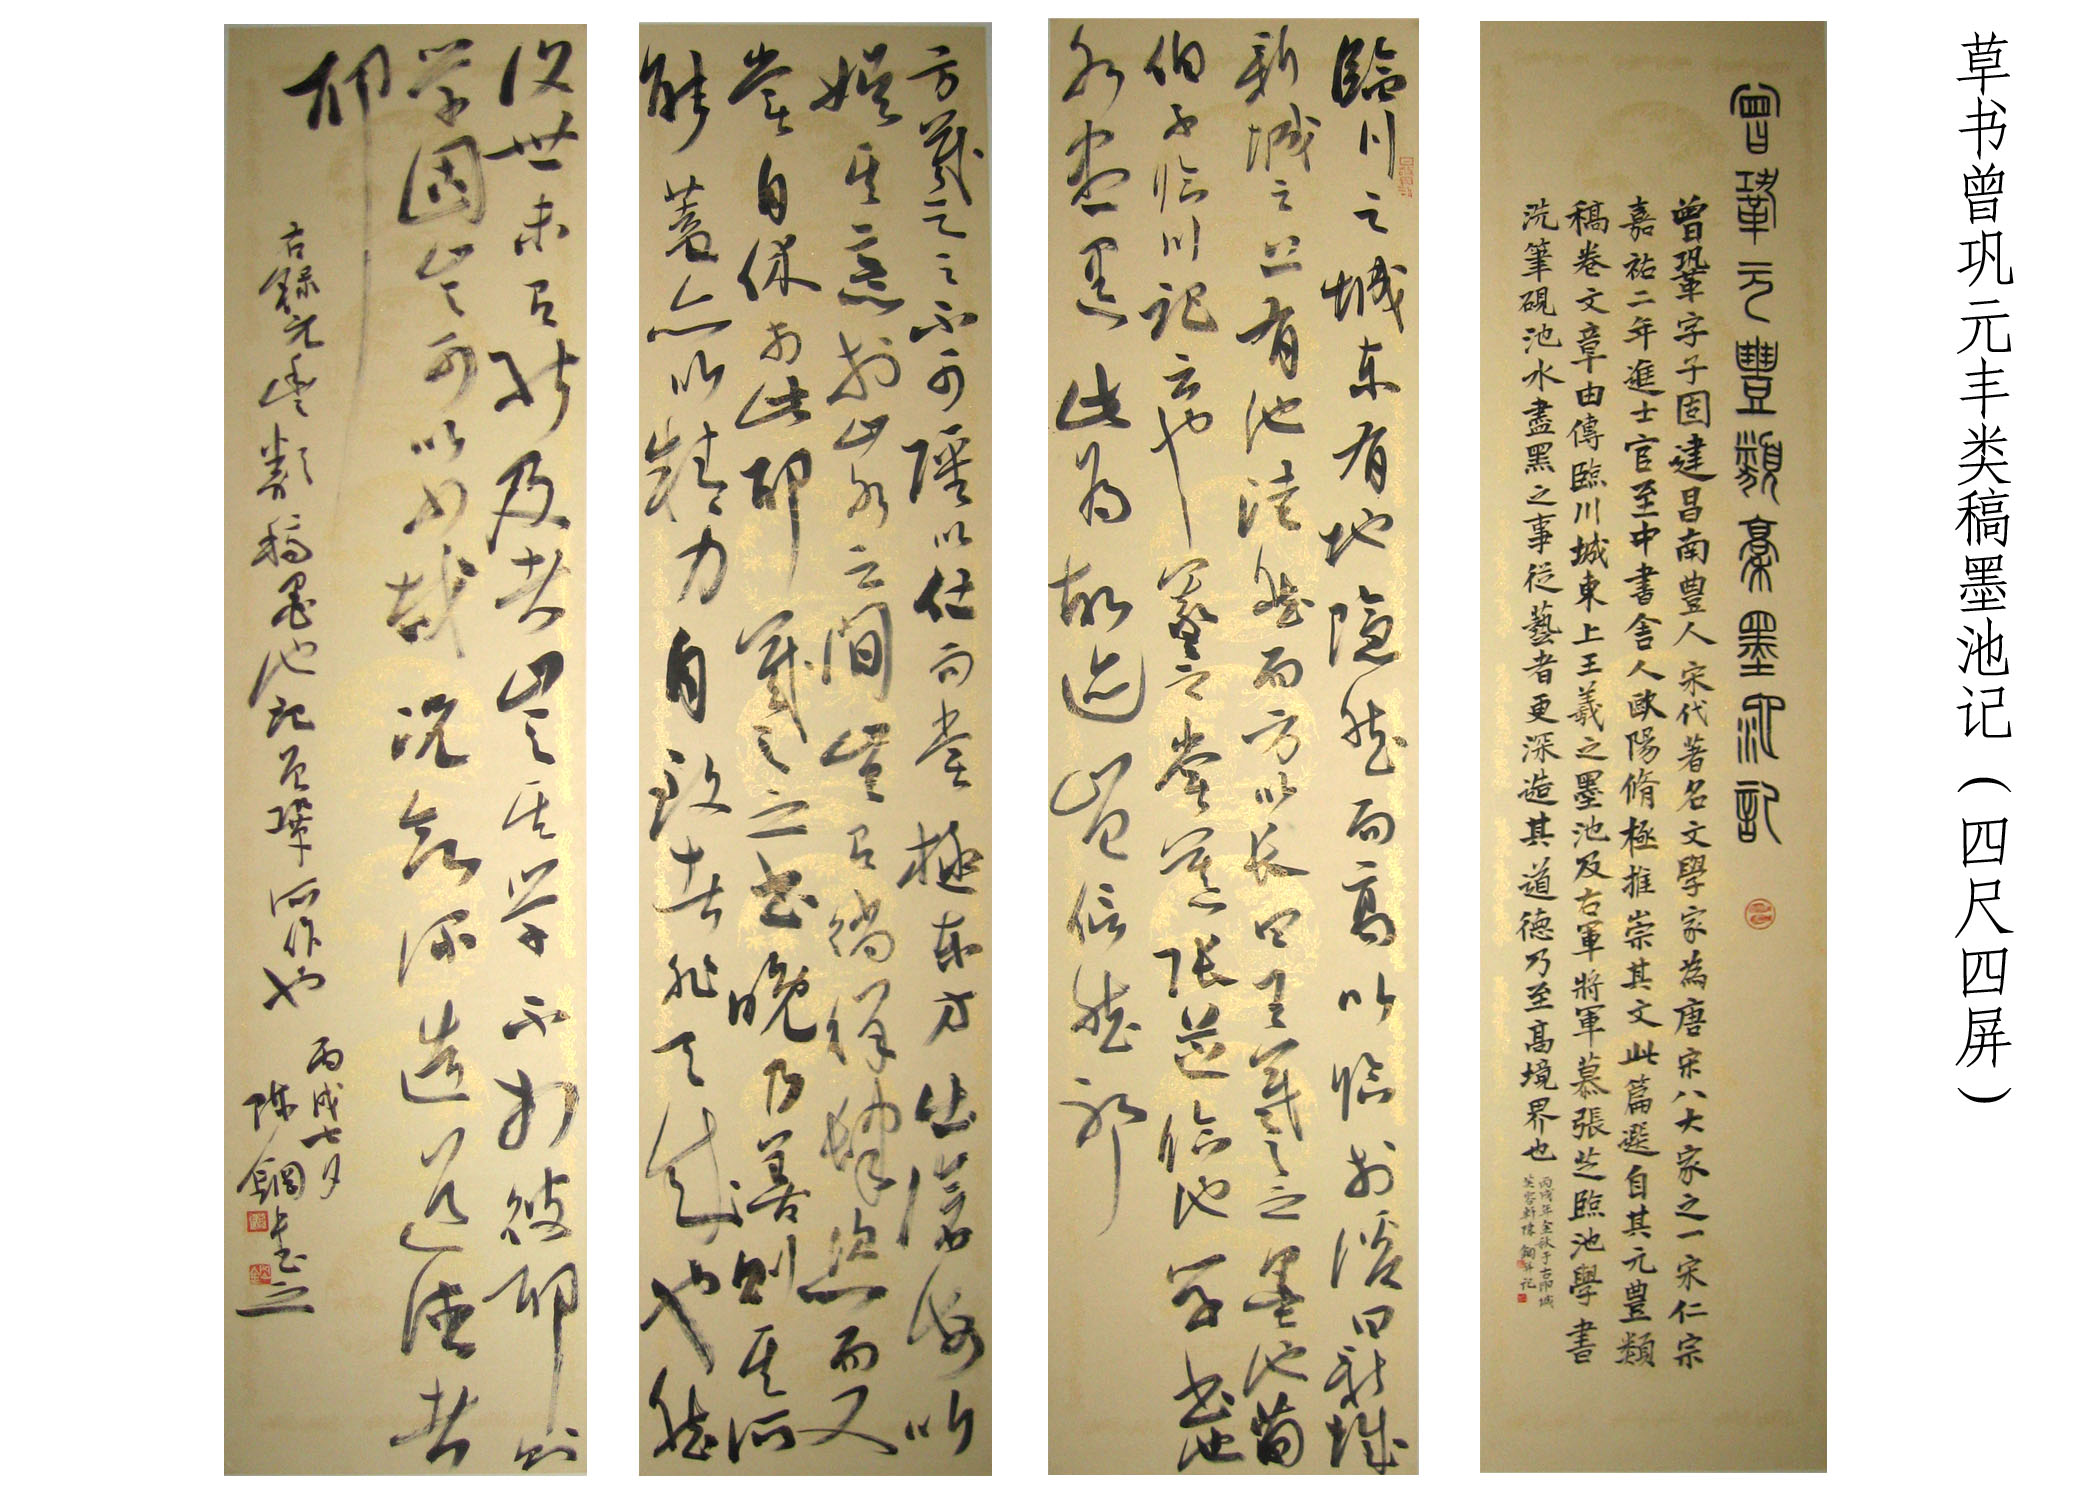 草书曾巩元丰类稿墨池记（四尺四屏）
曾鞏元豐類稾墨池記
曾鞏字子固建昌南豊人宋代著名文學家為唐宋八大家之一宋仁宗
嘉祐二年進士官至中書舍人歐陽脩極推崇其文此篇選自其元豊類
稿卷文章由傳臨川城東上王羲之墨池及右軍將軍慕張芝臨池學書
洗筆硯池水盡黑之事從藝者更深造其道德乃至高境界也
丙戌年金秋于古
臨川之城東有地隱然而高以臨於溪曰新城
新城之上有池洼然而方以長曰王羲之之墨池荀
伯子臨川記云也羲之嘗慕張芝臨池學書池
水盡黑此為故迹豈信然邪
方羲之之不可強以仕而嘗極東方出滄海以
娛其意於山水之間豈有徜徉肆恣而又
嘗自休於此耶羲之之書晚乃善則其所
能蓋亦以精力自致者非天成也然
後世未有能及者豈其學不如彼耶則
學固豈可以少哉況欲深造道德者
耶
右錄元豐類稿墨池記曾鞏所作也
丙戌七月
陈鋼書之